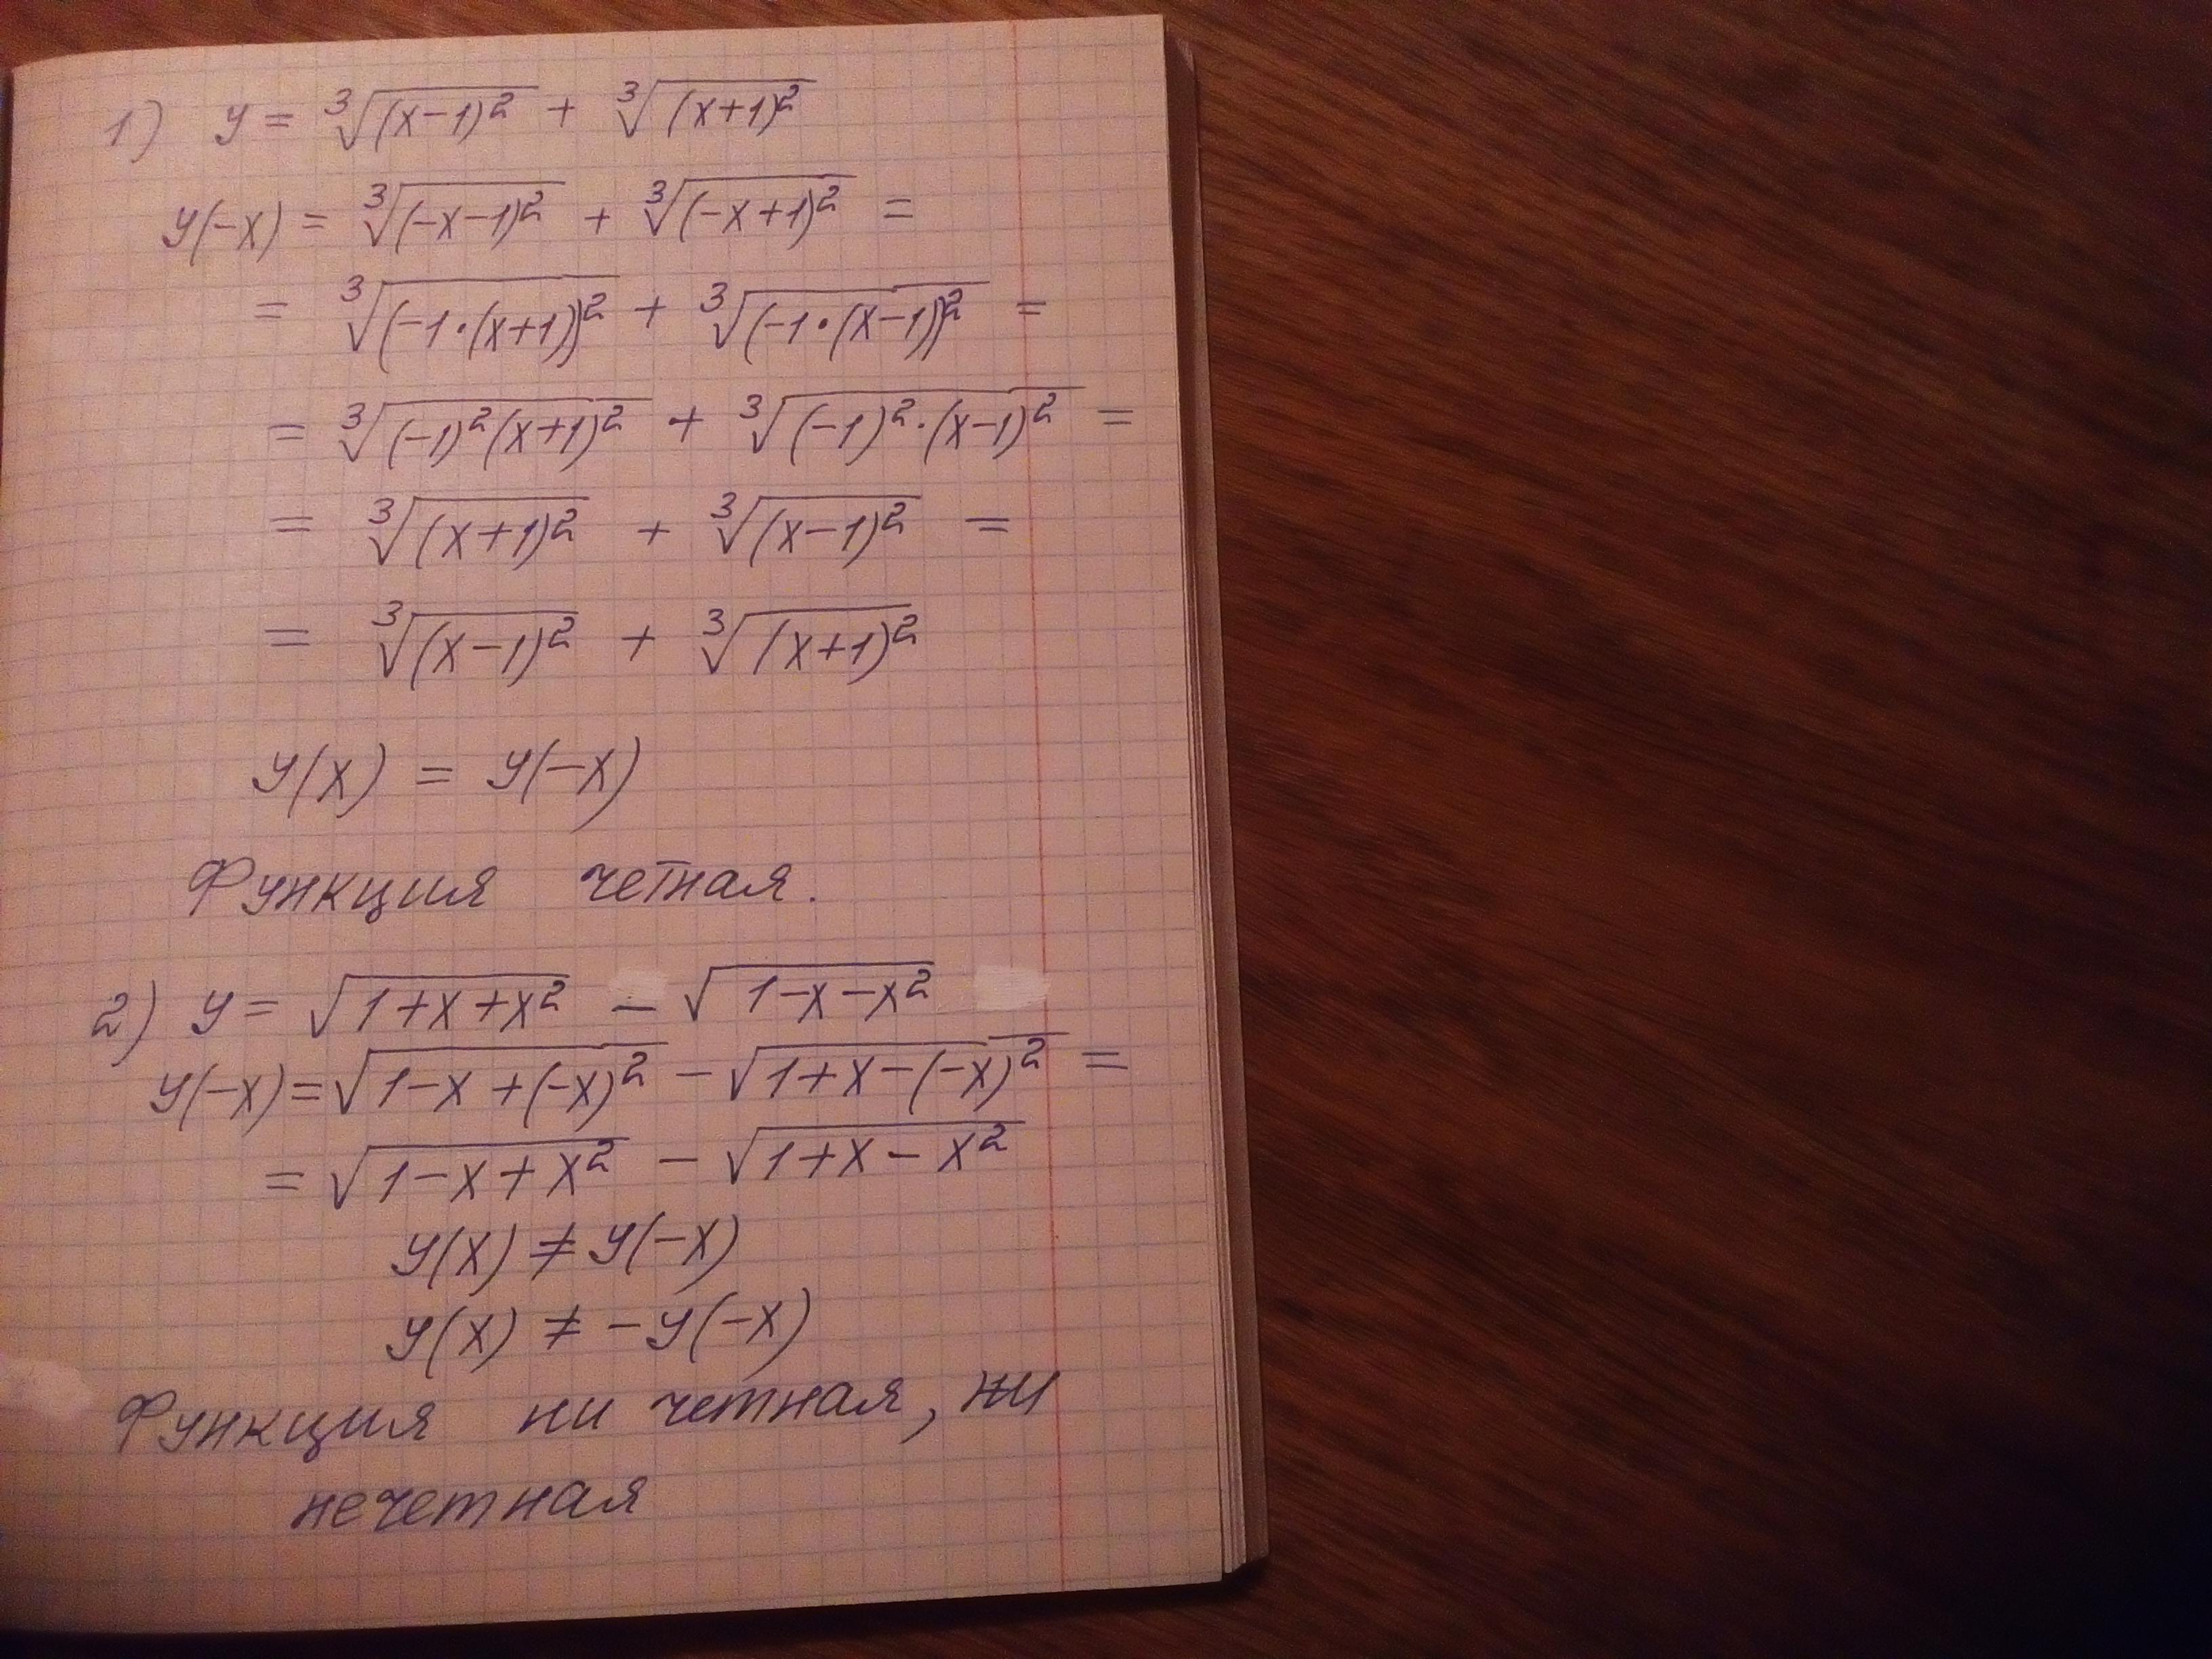 1) y = ∛(x-1)² + ∛(x+1)²
y(-x) = ∛(-x-1)² + ∛(-x+1)² =
= ∛(-1·(x+1))² + ∛(-1·(x-1))² =
= ∛(-1)²(x+1)² + ∛(-1)²·(x-1)² =
= ∛(x+1)² + ∛(x-1)² =
= ∛(x-1)² + ∛(x+1)²
y(x) = y(-x)
Функция четная.
2) y = √1+x+x² - √1-x-x²
y(-x) = √1-x+(-x)² - √1+x-(-x)² =
= √1-x+x² - √1+x-x²
y(x) ≠ y(-x)
y(x) ≠ -y(-x)
Функция ни четная, ни
нечетная